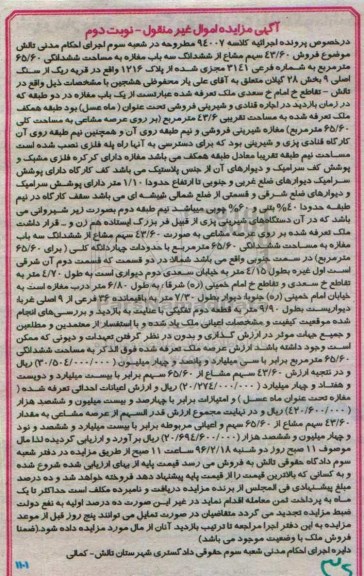 آگهی مزایده اموال غیر منقول - نوبت دوم
درخصوص پرونده اجرائیه کلاسه 94007 مطروحه در شعبه سوم اجرای احکام مدنی تالش
موضوع فروش 43/60 سهم مشاع از ششدانگ سه باب مغازه به مساحت ششدانگی 65/60
مترمربع به شماره فرعی 3141 مجزی شده از پلاک 1216 واقع در قریه ریگ از سنگ
اصلی 9 بخش 28 گیلان متعلق به آقای علی یار محفوظی هشجین با مشخصات ذیل واقع در
تالش - تقاطع خ امام خ سعدی ملک تعرفه شده عبارتست از یک باب مغازه در دو طبقه که
در زمان بازدید در اجاره قنادی و شیرینی فروشی تحت عنوان ( ماه عسل) بود طبقه همکف
ملک تعرفه شده به مساحت تقریبی 43/6 مترمربع (بر روی عرصه مشاعی به مساحت کلی
65/60 مترمربع) مغازه شیرینی فروشی و نیم طبقه روی آن و همچنین نیم طبقه روی آن
کارگاه قنادی پزی و شیرینی بود که برای دسترسی به آنها راه پله فلزی نصب شده است
مساحت نیم طبقه تقریبا معادل طبقه همکف می باشد مغازه دارای کرکره فلزی مشبک و
پوشش کف سرامیک و دیوارهای آن از جنس پلاستیک می باشد کف کارگاه دارای پوشش
سرامیک دیوارهای ضلع غربی و جنوبی تا ارتفاع حدودا 1/10 متر دارای پوشش سرامیک
و دیوارهای ضلع شرقی و قسمتی از ضلع شمالی شیشه ای می باشد سقف کارگاه در نیم
طبقه حدودا 40% بتنی و 60% چوبی میباشد نیم طبقه دوم بصورت زیر شیروانی می
باشد که در آن دستگاههای شیرینی پزی از قبیل فر بزرگ ایستاده هم زن و .. قرار داشت
ملک تعرفه شده بر روی عرصه مشاعی به صورت 43/60 سهم مشاع از ششدانگ سه باب
مغازه به مساحت ششدانگی 65/60 مترمربع با حدودات چهاردانگه کلی ( برای 65/60
مترمربع) در سمت جنوبی واقع می باشد شمالا: در دو قسمت که قسمت دوم آن شرقی
است اول غیره بطول 4/15 متر به خیابان سعدی دوم دیواری است به طول 4/70 متر به
تقاطع خ سعدی و تقاطع خ امام خمینی (ره) شرقا: به طول 6/80 متر درب مغازه است به
خیابان امام خمینی (ره) جنوبا: دیوار بطول 7/30 متر به باقیمانده 36 فرعی از 9 اصلی غربا:
دیواریست بطول 9/90 متر به قطعه دوم تفکیکی با عنایت به بازدید و بررسی های انجام
شده موقعیت کیفیت و مشخصات اعیانی ملک یاد شده و با استفسار از معتمدین و مطلعین
و جمیع جهات موثر در ارزش گذاری و بدون در نظر گرفتن تعهدات و دیونی که ممکن
است وجود داشته باشد ارزش عرصه ملک تعرفه شده فوق الذکر به مساحت ششدانگی
65/60 مترمربع برابر با سی میلیارد و پانصد و چهار میلیون (30/504/000/000) ریال
و در نتیجه ارزش 43/60 سهم مشاع از 65/60 سهم برابر با بیست میلیارد و دویست
و هفتاد و چهار میلیارد (20/274/000/000) ریال و ارزش اعیانات احداثی تعرفه شده (
مغازه تحت عنوان ماه عسل ) و امتیازات برابر با چهارصد و بیست میلیون و ششصد هزار
(420/600/000) ریال و در نهایت مجموع ارزش قدر السهم از عرصه مشاعی به مقدار
43/60 سهم مشاع از 65/60 سهم و اعیانی مربوطه برابر با بیست میلیارد و ششصد و نود
و چهار میلیون و ششصد هزار (20/694/600/000) ریال برآورد و ارزیابی گردیده لذا مال
موصوف 11 صبح روز دو شنبه 96/2/18 ساعت 11 صبح از طریق مزایده در دفتر شعبه
سوم دادگاه حقوقی تالش به فروش می رسد قیمت پایه از بهای ارزیابی شده شروع شده
و به کسانی که بالاترین قیمت را از قیمت پایه پیشنهاد دهد فروخته خواهد شد و ده درصد
مبلغ پیشنهادی فی المجلس از برنده مزایده دریافت و نامبرده مکلف است حداکثر تا یک
ماه به پرداخت ثمن معامله اقدام نماید در غیر این صورت ده درصد اولیه به نفع دولت
ضبط مزایده تجدید می گردد متقاضیان در صورت تمایل می توانند پنج روز قبل از موعد
مزایده به این دفتر اجرا مراجعه تا ترتیب بازدید آنان از مال مورد مزایده داده شود.(ضمنا
فروش ملک با وضعیت موجود می باشد)
دایره اجرای احکام مدنی شعبه سوم حقوقی دادگستری شهرستان تالش - کمالی
1101